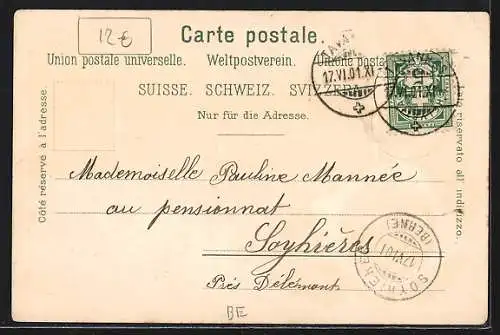 12.-
Carte postale.
Union postale universelle. Weltpostverein. Unione postale
SUISSE. SCHWEIZ. SVIZZERA.
Nur für die Adresse.
Côté réservé à l'adresse.
lato riservato all indirizzo.
17.VI.01.XI
17.VI.01.XI
Mademoiselle Pauline Mannée
au pensionnat
Soyhières
Près Délémont
SOYHIERES
17.VI.01
(BERNE)
BE